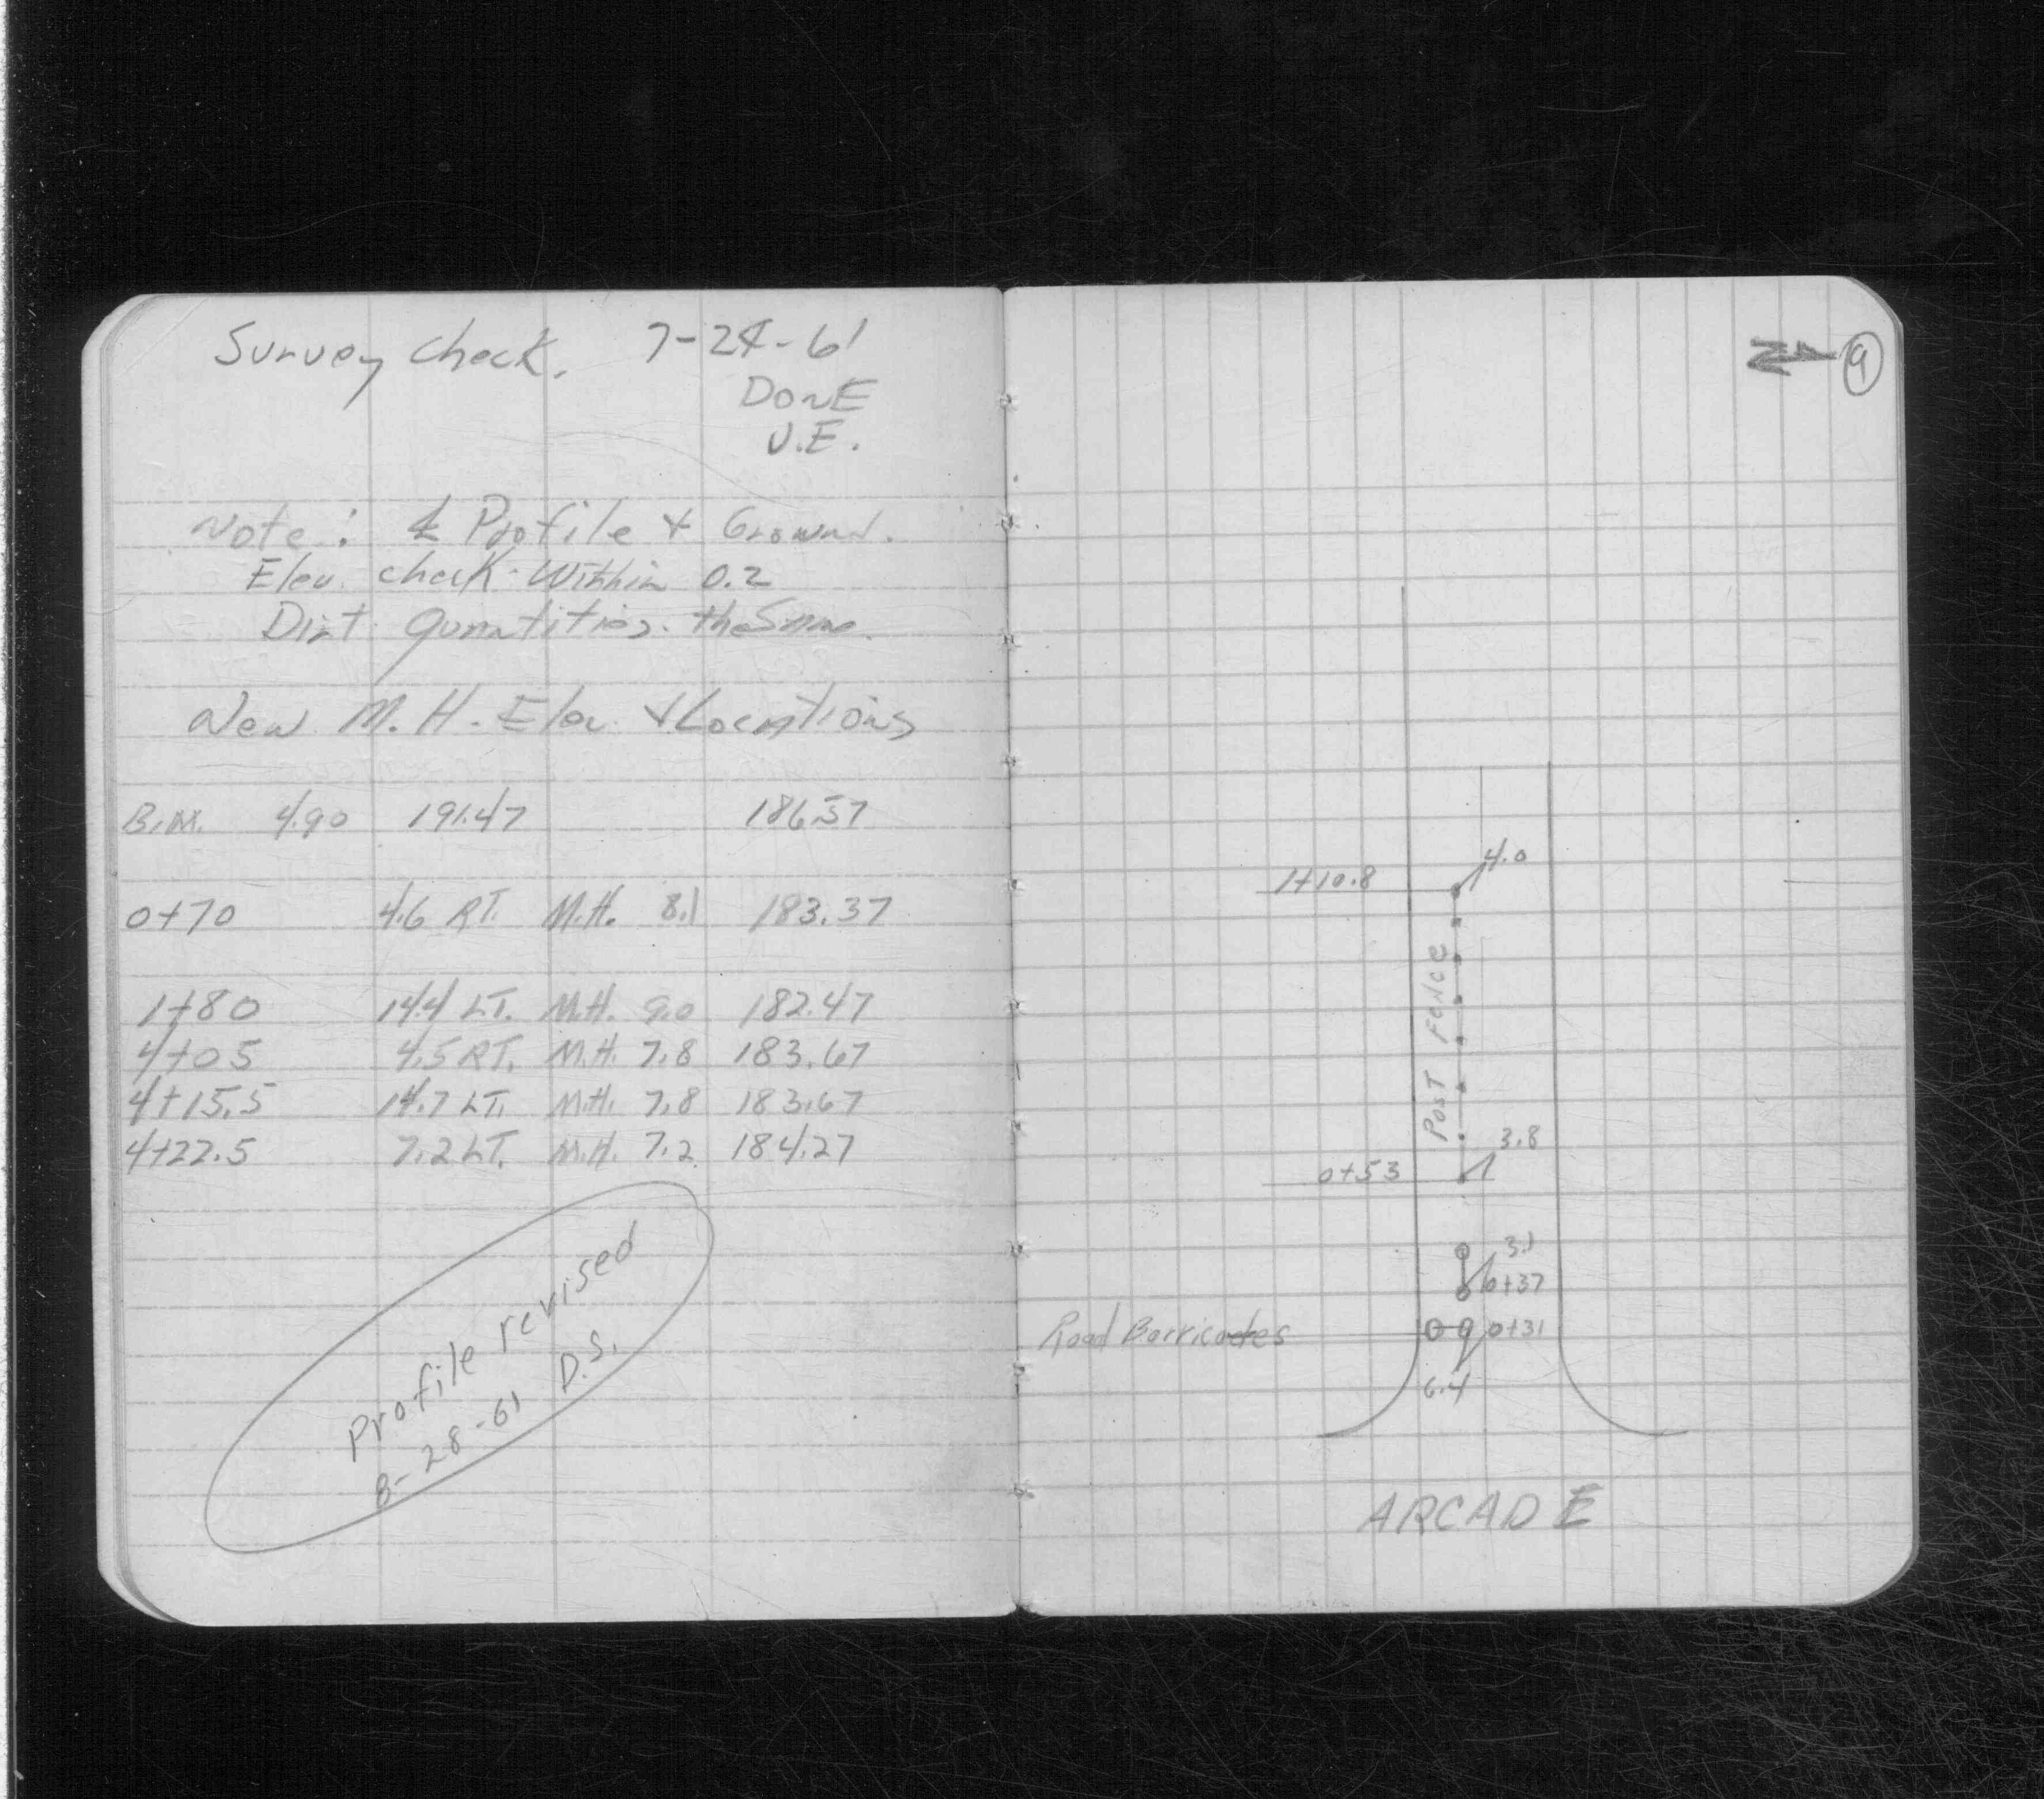 Survey Check. 7-24-61
DONE
J.E.
Note: ℄ Profile & Ground.
Elev. check within 0.2
Dirt quantities the Same.
New M.H. Elev & Locations
B.M. 4.90 191.47 186.57
0+70 4.6 RT. M.H. 8.1 183.37
1+80 14.4 LT. M.H. 9.0 182.47
4+05 4.5 RT. M.H. 7.8 183.67
4+15.5 14.7 LT. M.H. 7.8 183.67
4+22.5 7.2 LT. M.H. 7.2 184.27
Profile revised
8-28-61 D.S.
N 9
4.0
1+10.8
POST FENCE
3.8
0+53
3.1
0+37
Road Barricades 0+31
6.4
ARCADE